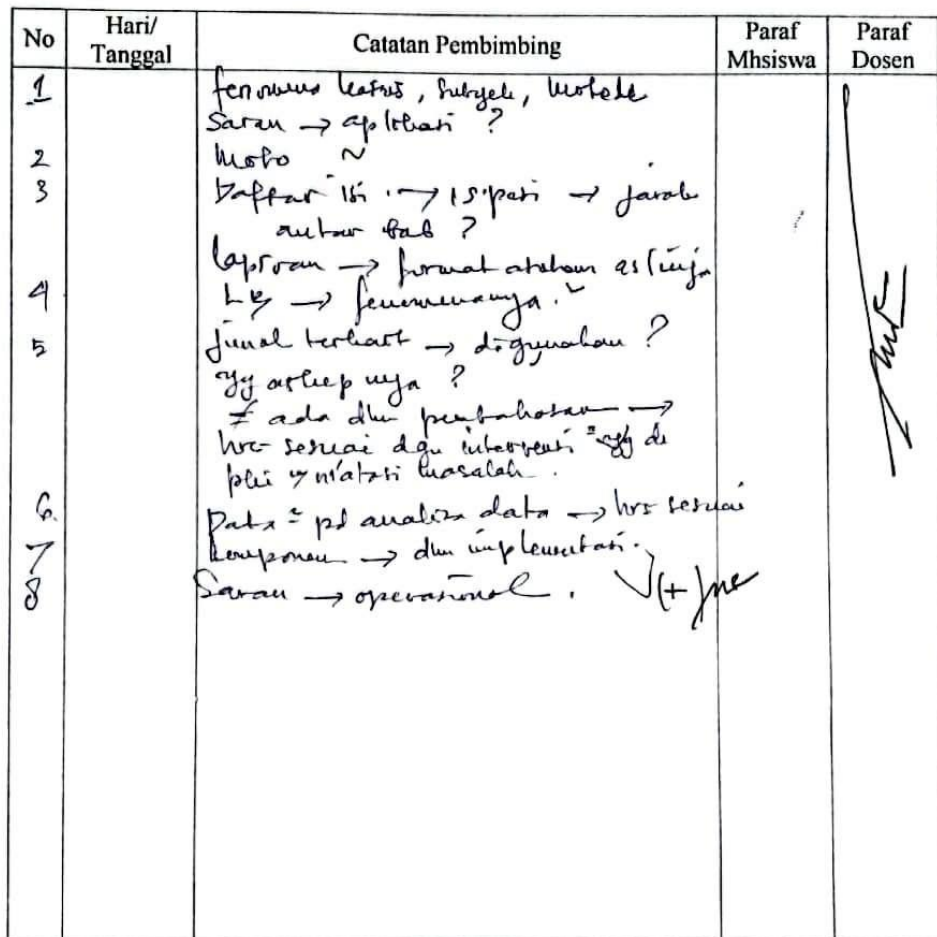 No Hari/ Tanggal Catatan Pembimbing Paraf Mhsiswa Paraf Dosen
1 fenomena kasus, subyek, metode
Saran → aplikasi ?
2 Moto ~
3 Daftar isi → 1 spasi → jarak
antar bab ?
laporan →
4 → fenomenanya.
5 Jurnal terkait → digunakan ?
yg askepnya ?
≠ ada dlm pembahasan →
hrs sesuai dgn intervensi yg di
masalah.
6. Data² pd analisa data → hrs sesuai
7 komponen → dlm implementasi.
8 Saran → operasional.